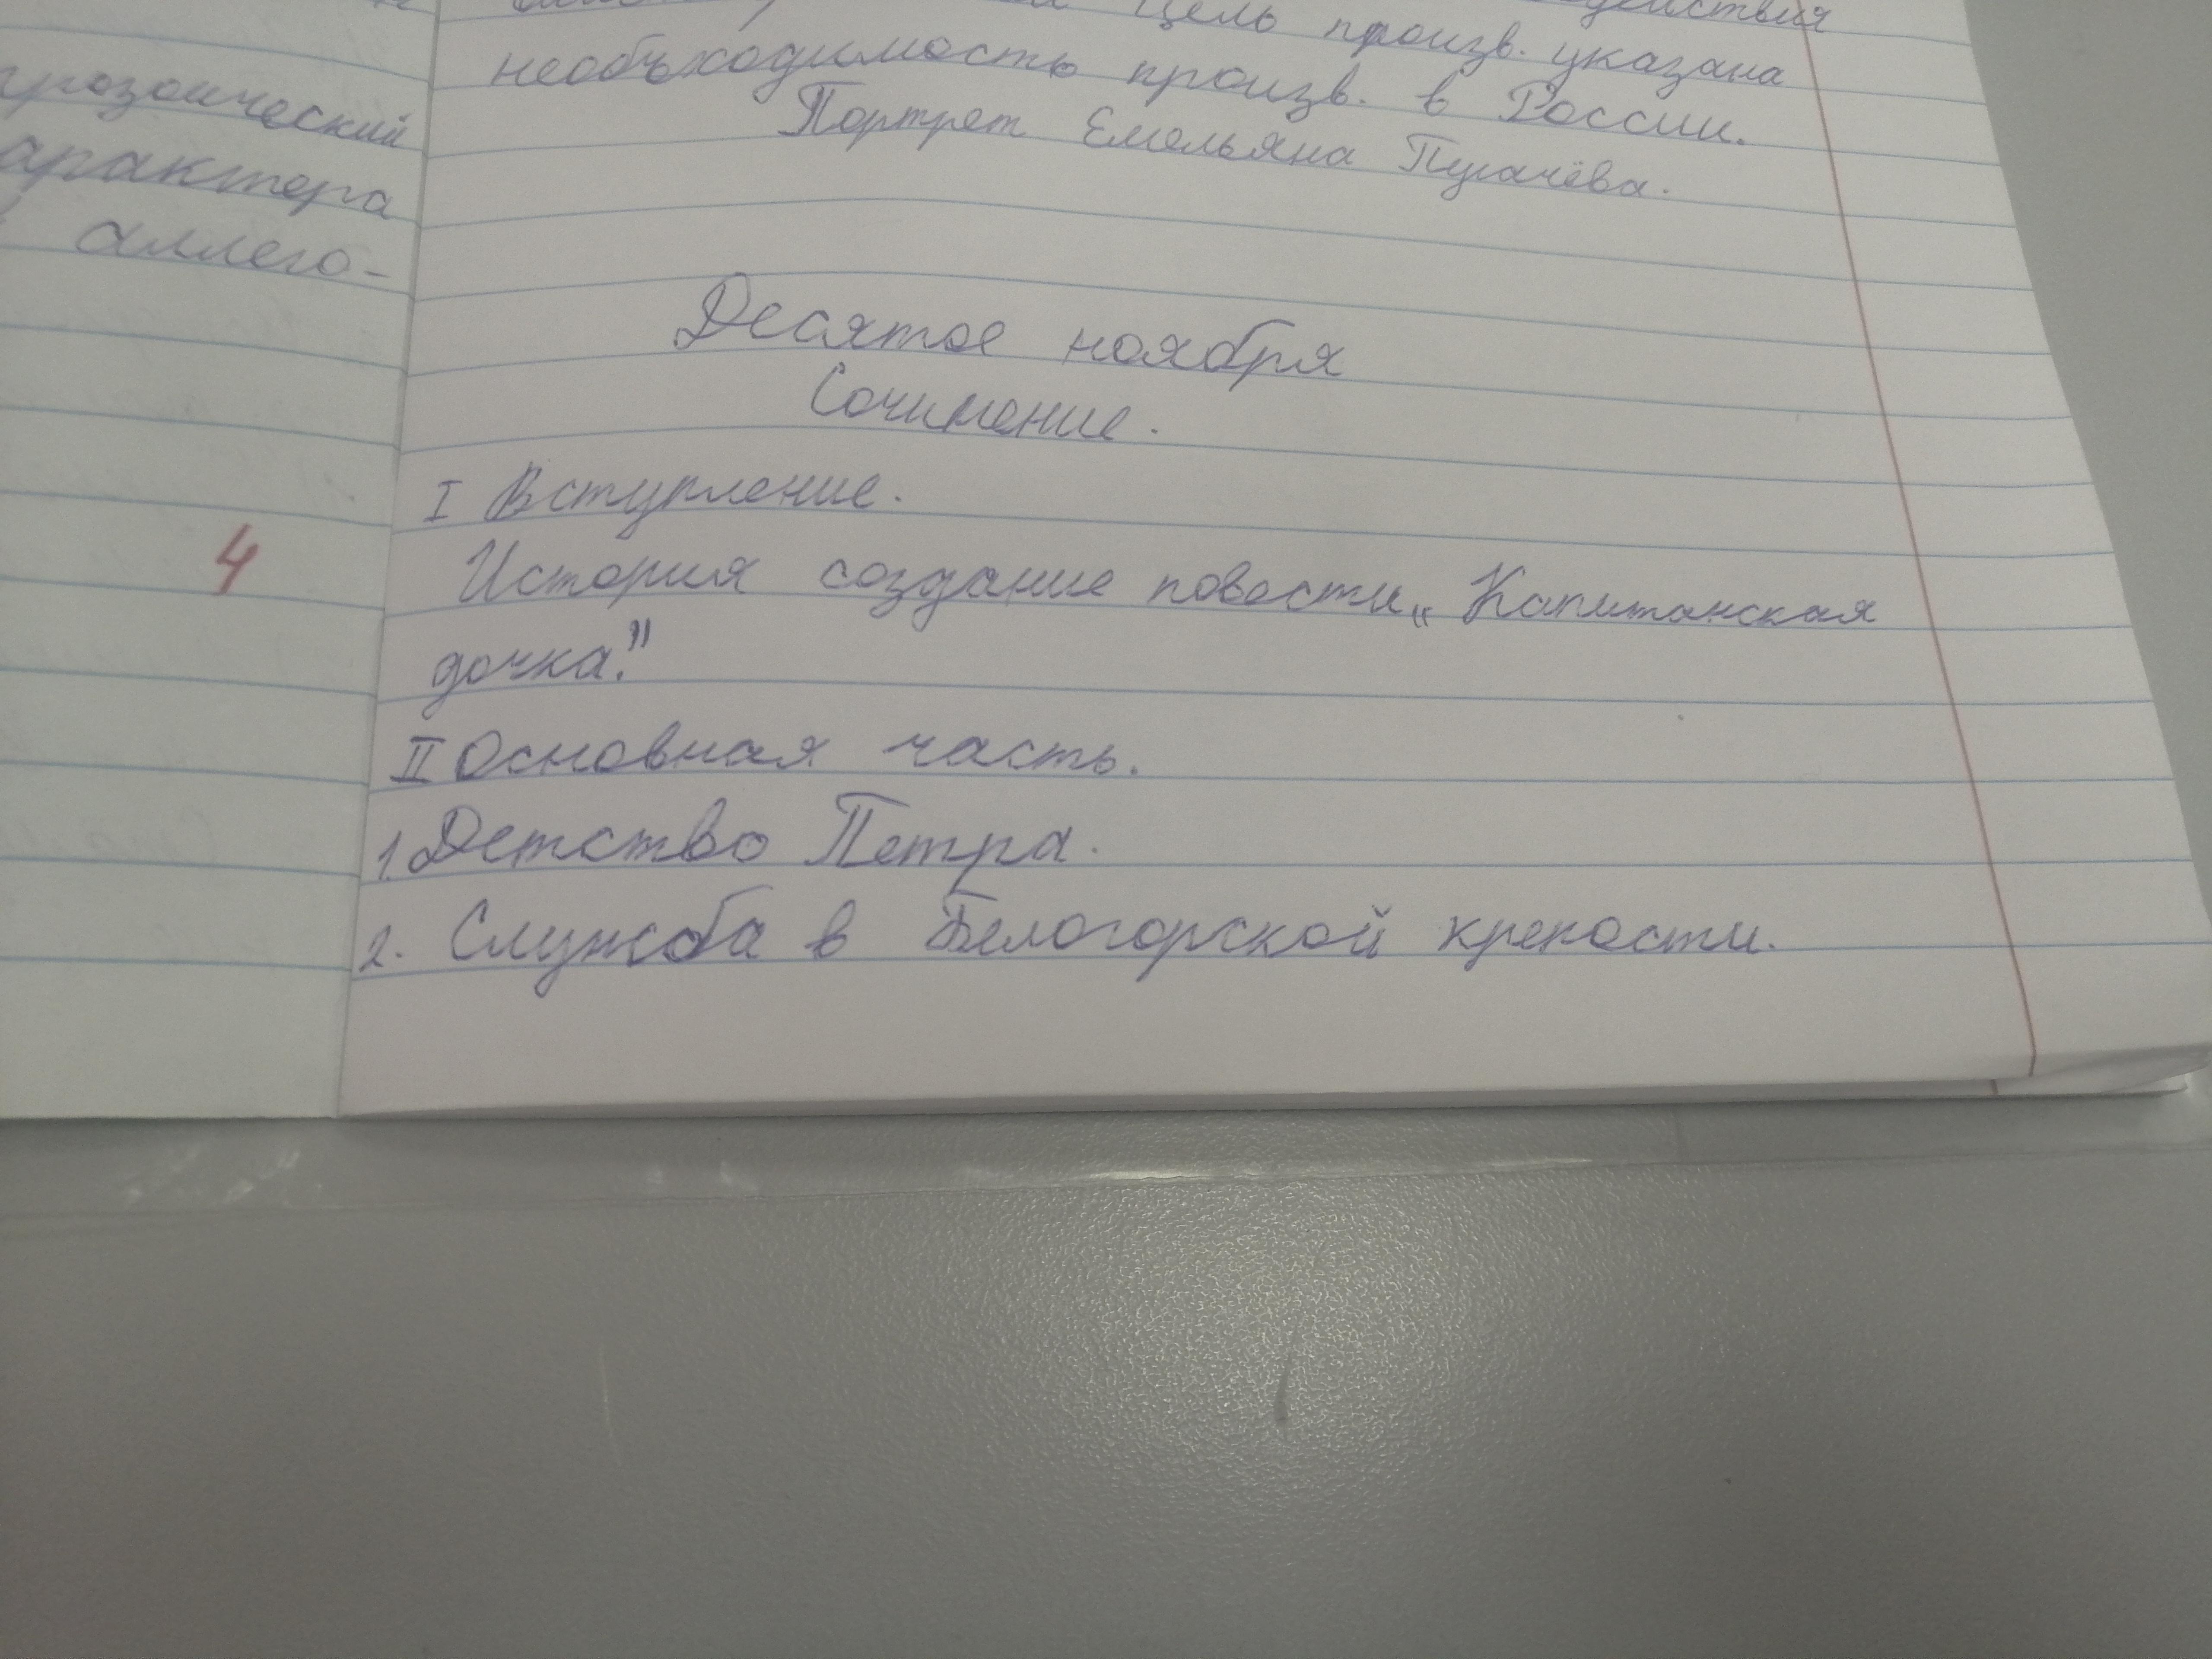 прозаический
арактера
аллего-
4
Цель произв. указана
необъходимость произв. в России.
Портрет Емельяна Пугачёва.
Десятое ноября
Сочинение.
I Вступление.
История создание повести „Капитанская
дочка."
II Основная часть.
1. Детство Петра.
2. Служба в Белогорской крепости.